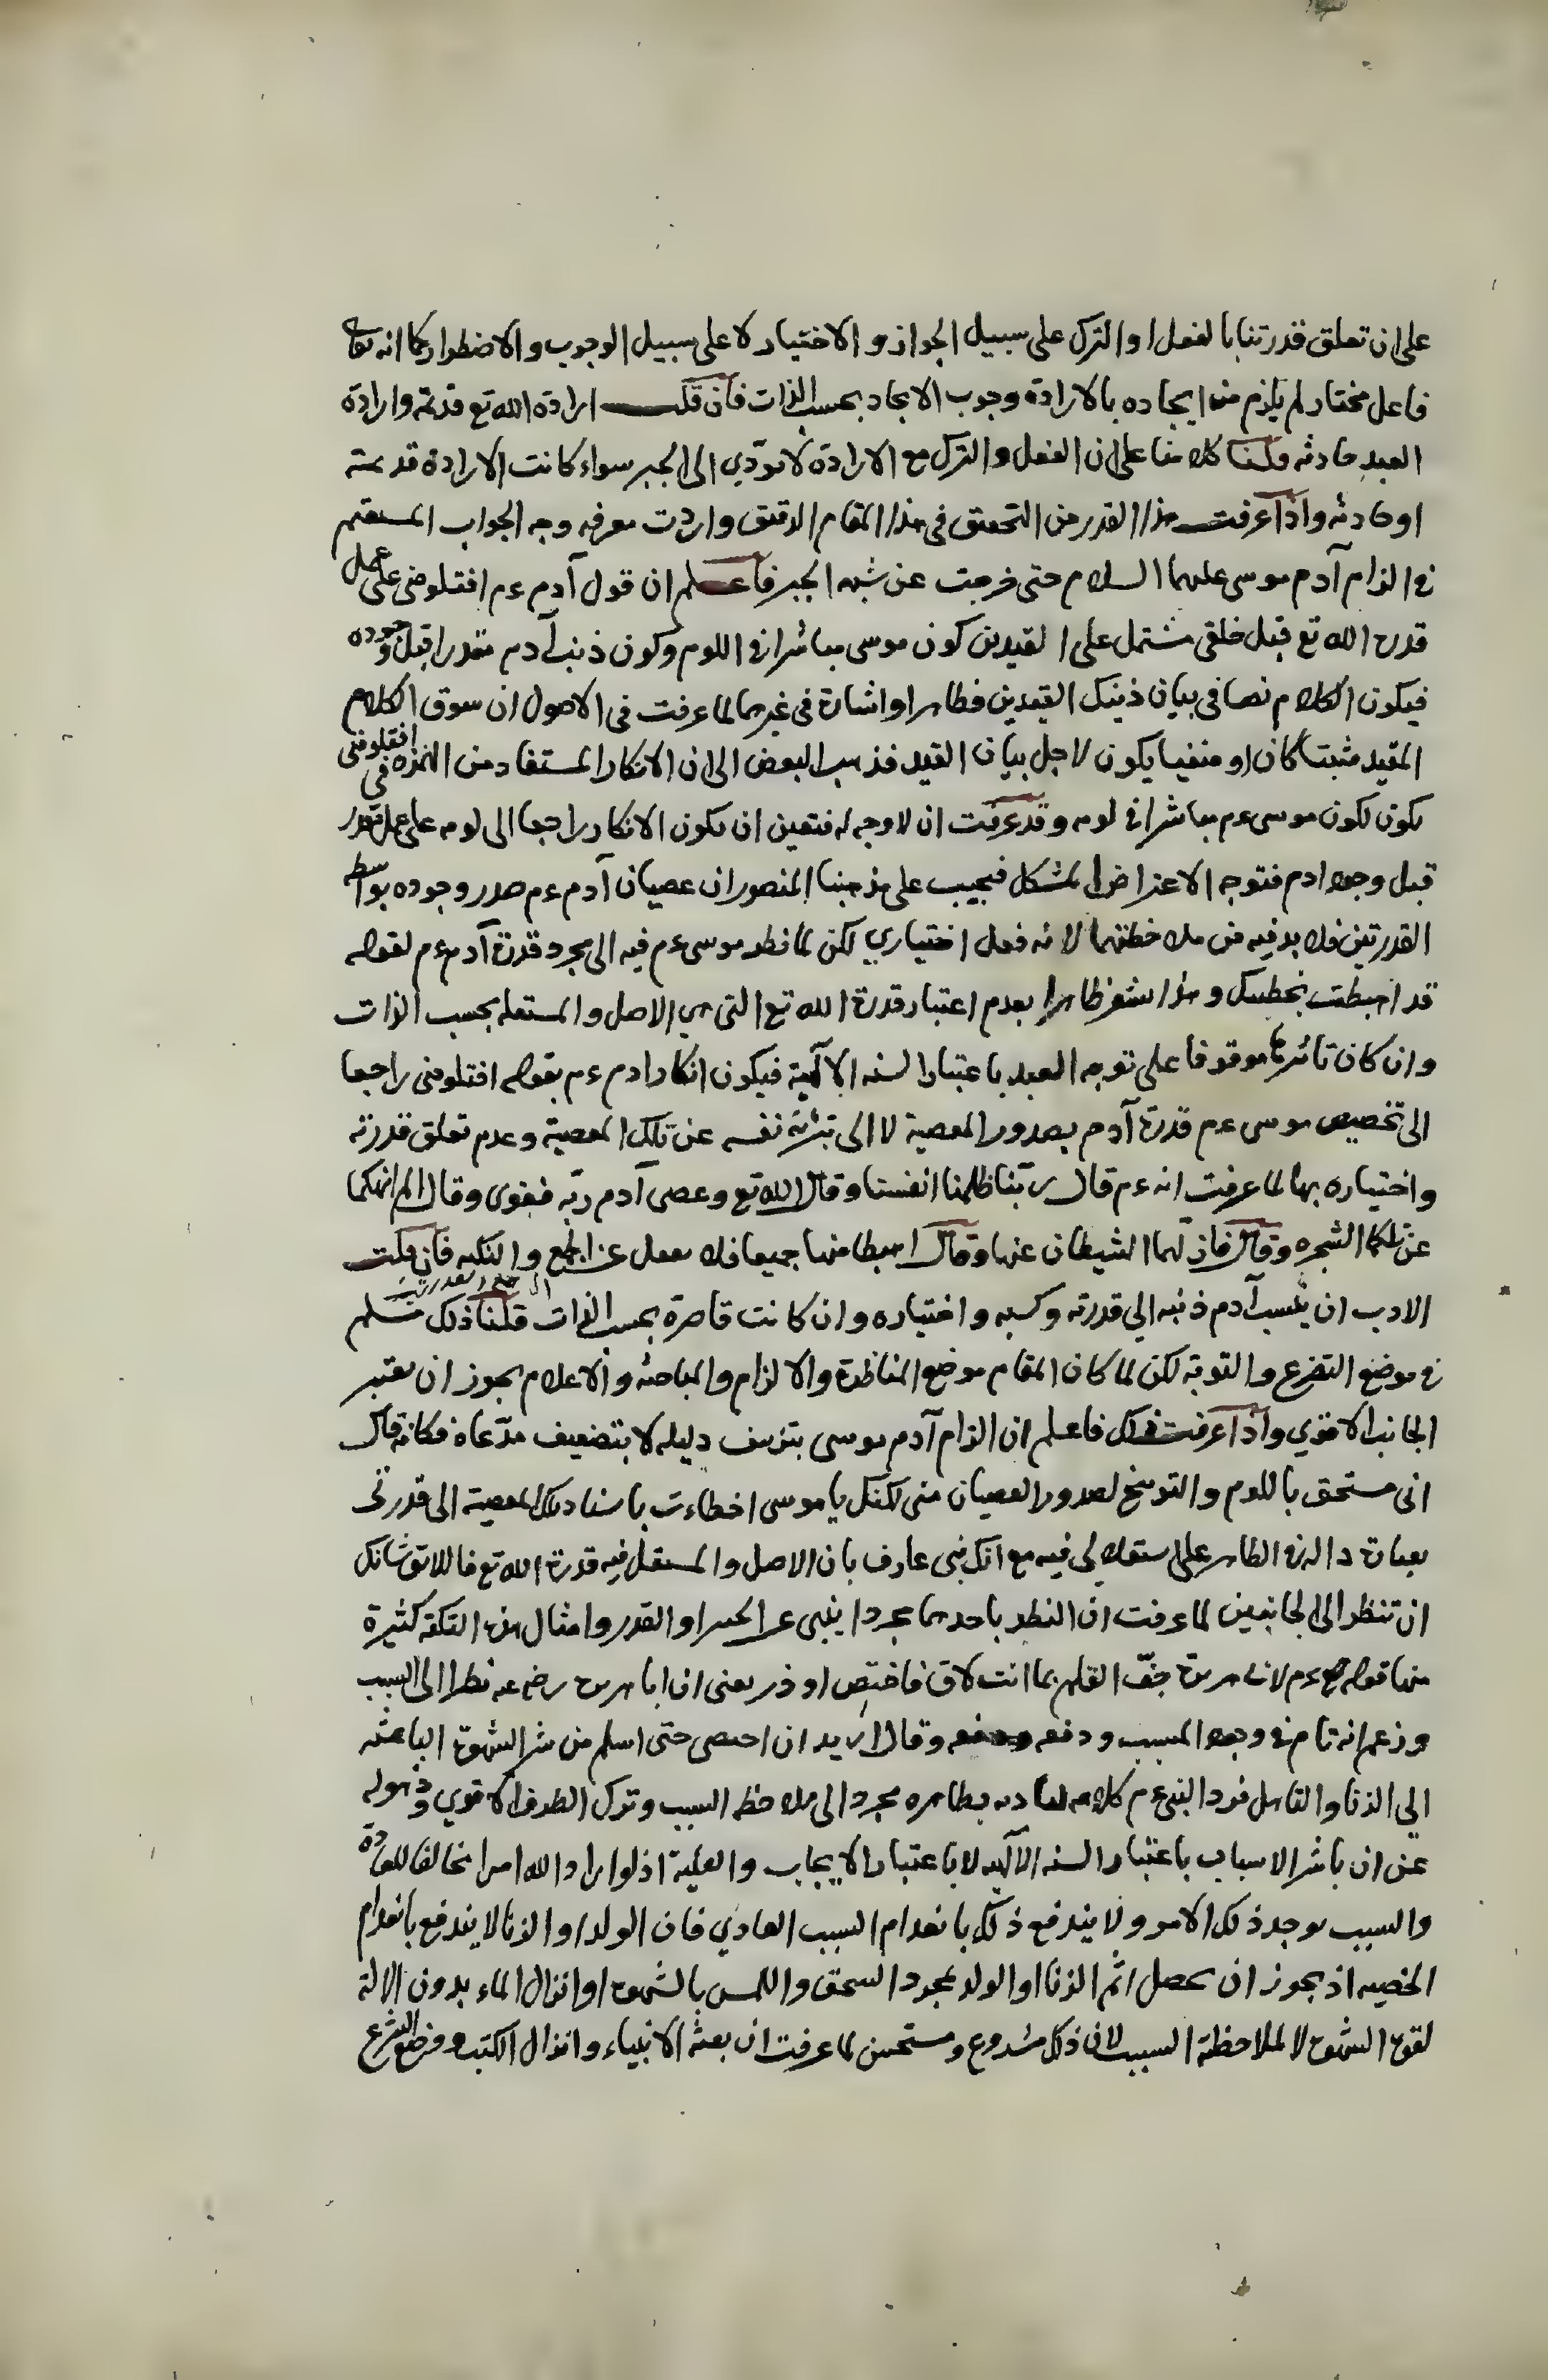 على ان تعلق قدرتنا بالفعل او الترك على سبيل الجواز و الاختيار لا على سبيل الوجوب و الاضطرار كما انه تعا
فاعل مختار لم يلزم من ايجاده بالارادة وجوب الايجاد بحسب الذات فان قلت ارادة الله تع قديمة وارادة
العبد حادثه قلنا كلامنا على ان الفعل و الترك مع الارادة لا تودي الى الجبر سواء كانت الارادة قديمة
او حادثه واذا عرفت هذا القدر من التحقيق في هذا المقام الدقيق واردت معرفه وجه الجواب المستقيم
في الزام آدم موسى عليهما السلام حتى خرجت عن شبه الجبر فاعلم ان قول آدم عم افتلومني على عمل
قدره الله تع قبل خلقي مشتمل على القيدين كون موسى مباشرا في اللوم وكون ذنب آدم مقدرا قبل وجوده
فيكون الكلام نصا في بيان ذينك القيدين وظاهرا واشارة في غيرهما لما عرفت في الاصول ان سوق الكلام
المقيد مثبتا كان او منفيا يكون لاجل بيان القيد فذهب البعض الى ان الانكار المستفاد من الهمزة في افتلومني
يكون لكون موسى عم مباشرا في لومه وقد عرفت ان لا وجه له فتعين ان يكون الانكار راجعا الى لومه على عمل قدر
قبل وجود ادم فتوجه الاعتراض المشكل فيجيب على مذهبنا المنصور ان عصيان آدم عم صدر وجوده بواسطه
القدرتين فلا بد فيه من ملاحظتهما لانه فعل اختياري لكن لما نظر موسى عم فيه الى مجرد قدرة آدم عم لقوله
قد اهبطت بخطيتك وهذا يشعر ظاهرا بعدم اعتبار قدرة الله تع التي هي الاصل والمستقله بحسب الذات
وان كان تاثيرها موقوفا على توجه العبد باعتبار السنه الالهية فيكون انكار ادم عم بقوله افتلومني راجعا
الى تخصيص موسى عم قدرة آدم بصدور المعصية لا الى تبرئة نفسه عن تلك المعصية وعدم تعلق قدرته
واختياره بها لما عرفت انه عم قال ربنا ظلمنا انفسنا وقال الله تع وعصى آدم ربه فغوى وقال الم انهكما
عن تلكما الشجره وقال فازلهما الشيطان عنها وقال اهبطا منها جميعا فلا تغفل عن الجمع و النكته فان قلت
الادب ان ينسب آدم ذنبه الى قدرته وكسبه واختياره وان كانت قاصرة بحسب الذات قلنا ذلك مسلم
في موضع التضرع و التوبة لكن لما كان المقام موضع المناظرة والالزام والمباحثه والاعلام يجوز ان يعتبر
الجانب الاقوي واذا عرفت ذلك فاعلم ان الزام آدم موسى بتزييف دليله لا بتضعيف مدعاه فكانه قال
انى مستحق باللوم والتوبيخ لصدور العصيان مني لكنك يا موسى اخطاءت باسناد تلك المعصية الى قدرتي
بعبارة داله في الظاهر على استقلالي فيه مع انك نبي عارف بان الاصل والمستقل فيه قدرة الله تع فاللايق شانك
ان تنظر الى الجانبين لما عرفت ان النظر باحدهما مجردا ينبي عن الجبر او القدر وامثال هذه النكتة كثيرة
منها قوله عم لابي هريرة جف القلم بما انت لاق فاختص او ذر يعني ان ابا هريرة رضي عنه نظرا الى السبب
وزعم انه تام في وجود المسبب ودفعه وقال اريد ان اختصى حتى اسلم من شر الشهوة الباعثه
الى الزنا والتاهل فرد النبي عم كلامه بظاهره مجردا الى ملاحظه السبب وترك الطرف الاقوي وذهوله
عن ان باشر الاسباب باعتبار السنه الآلهيه لا باعتبار الايجاب والعلية اذ لو اراد الله امرا مخالفا للعادة
والسبب يوجد ذلك الامر ولا يندفع ذلك بانعدام السبب العادي فان الولد او الزنا لا يندفع بانعدام
الخصيه اذ يجوز ان يحصل اثم الزنا او الولد بمجرد السحق واللمس بالشهوة او انزال الماء بدون الالة
لقوة الشهوة لا لملاحظة السبب لان ذلك مشروع ومستحسن لما عرفت ان بعثة الانبياء وانزال الكتب ووضع الشرع